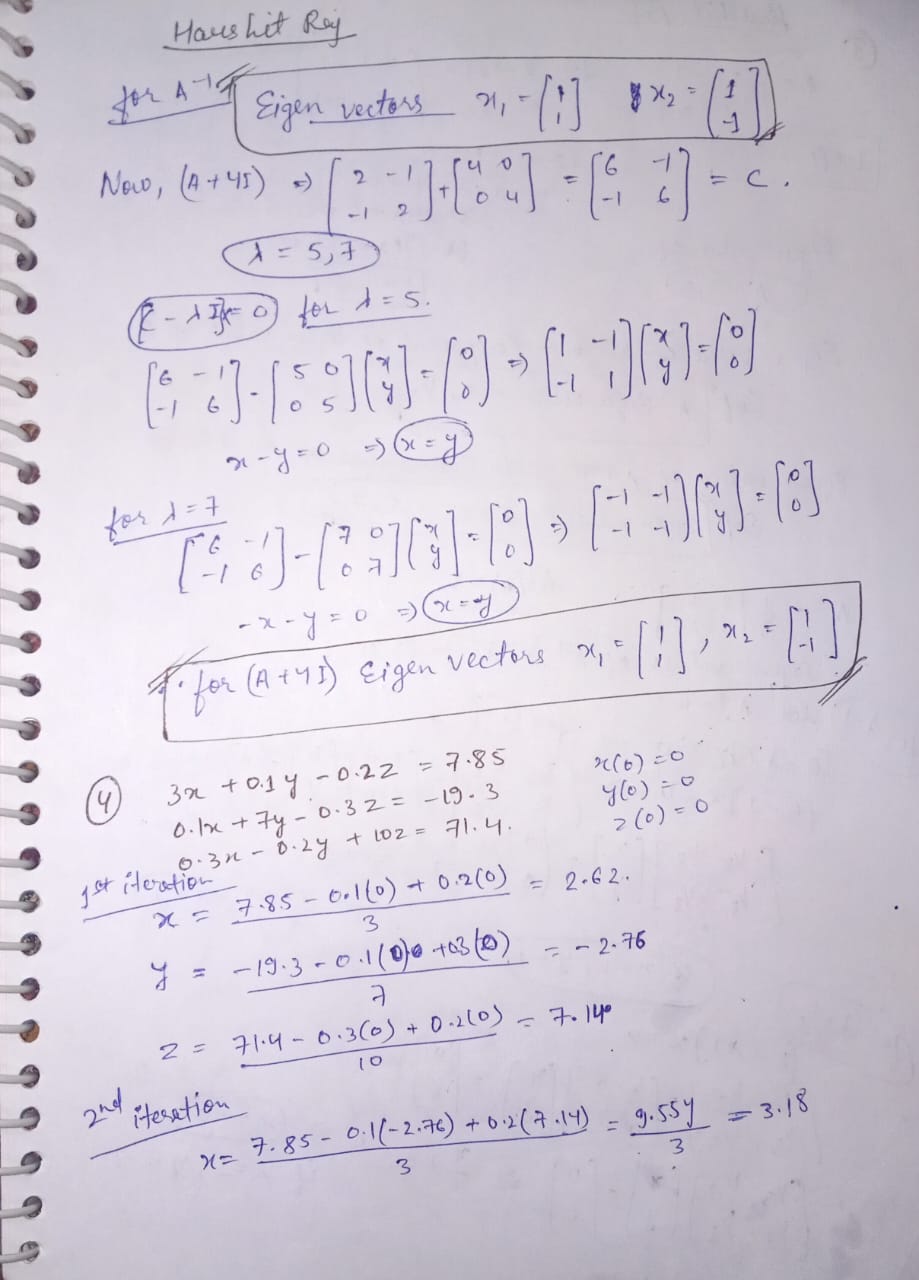 Harshit Raj
for A⁻¹ Eigen vectors x₁ = [1 1] x₂ = [1 -1]
Now, (A+4I) ⇒ [2 -1 -1 2] + [4 0 0 4] = [6 -1 -1 6] = C.
λ = 5,7
[C - λI]x = 0 for λ = 5.
[6 -1 -1 6] - [5 0 0 5] [x y] = [0 0] ⇒ [1 -1 -1 1] [x y] = [0 0]
x - y = 0 ⇒ x = y
for λ = 7
[6 -1 -1 6] - [7 0 0 7] [x y] = [0 0] ⇒ [-1 -1 -1 -1] [x y] = [0 0]
-x - y = 0 ⇒ x = -y
for (A+4I) Eigen vectors x₁ = [1 1], x₂ = [1 -1]
④ 3x + 0.1y - 0.2z = 7.85 x(0) = 0
0.1x + 7y - 0.3z = -19.3 y(0) = 0
0.3x - 0.2y + 10z = 71.4. z(0) = 0
1st iteration
x = 7.85 - 0.1(0) + 0.2(0) / 3 = 2.62.
y = -19.3 - 0.1(0) + 0.3(0) / 7 = -2.76
z = 71.4 - 0.3(0) + 0.2(0) / 10 = 7.14
2nd iteration
x = 7.85 - 0.1(-2.76) + 0.2(7.14) / 3 = 9.554 / 3 = 3.18